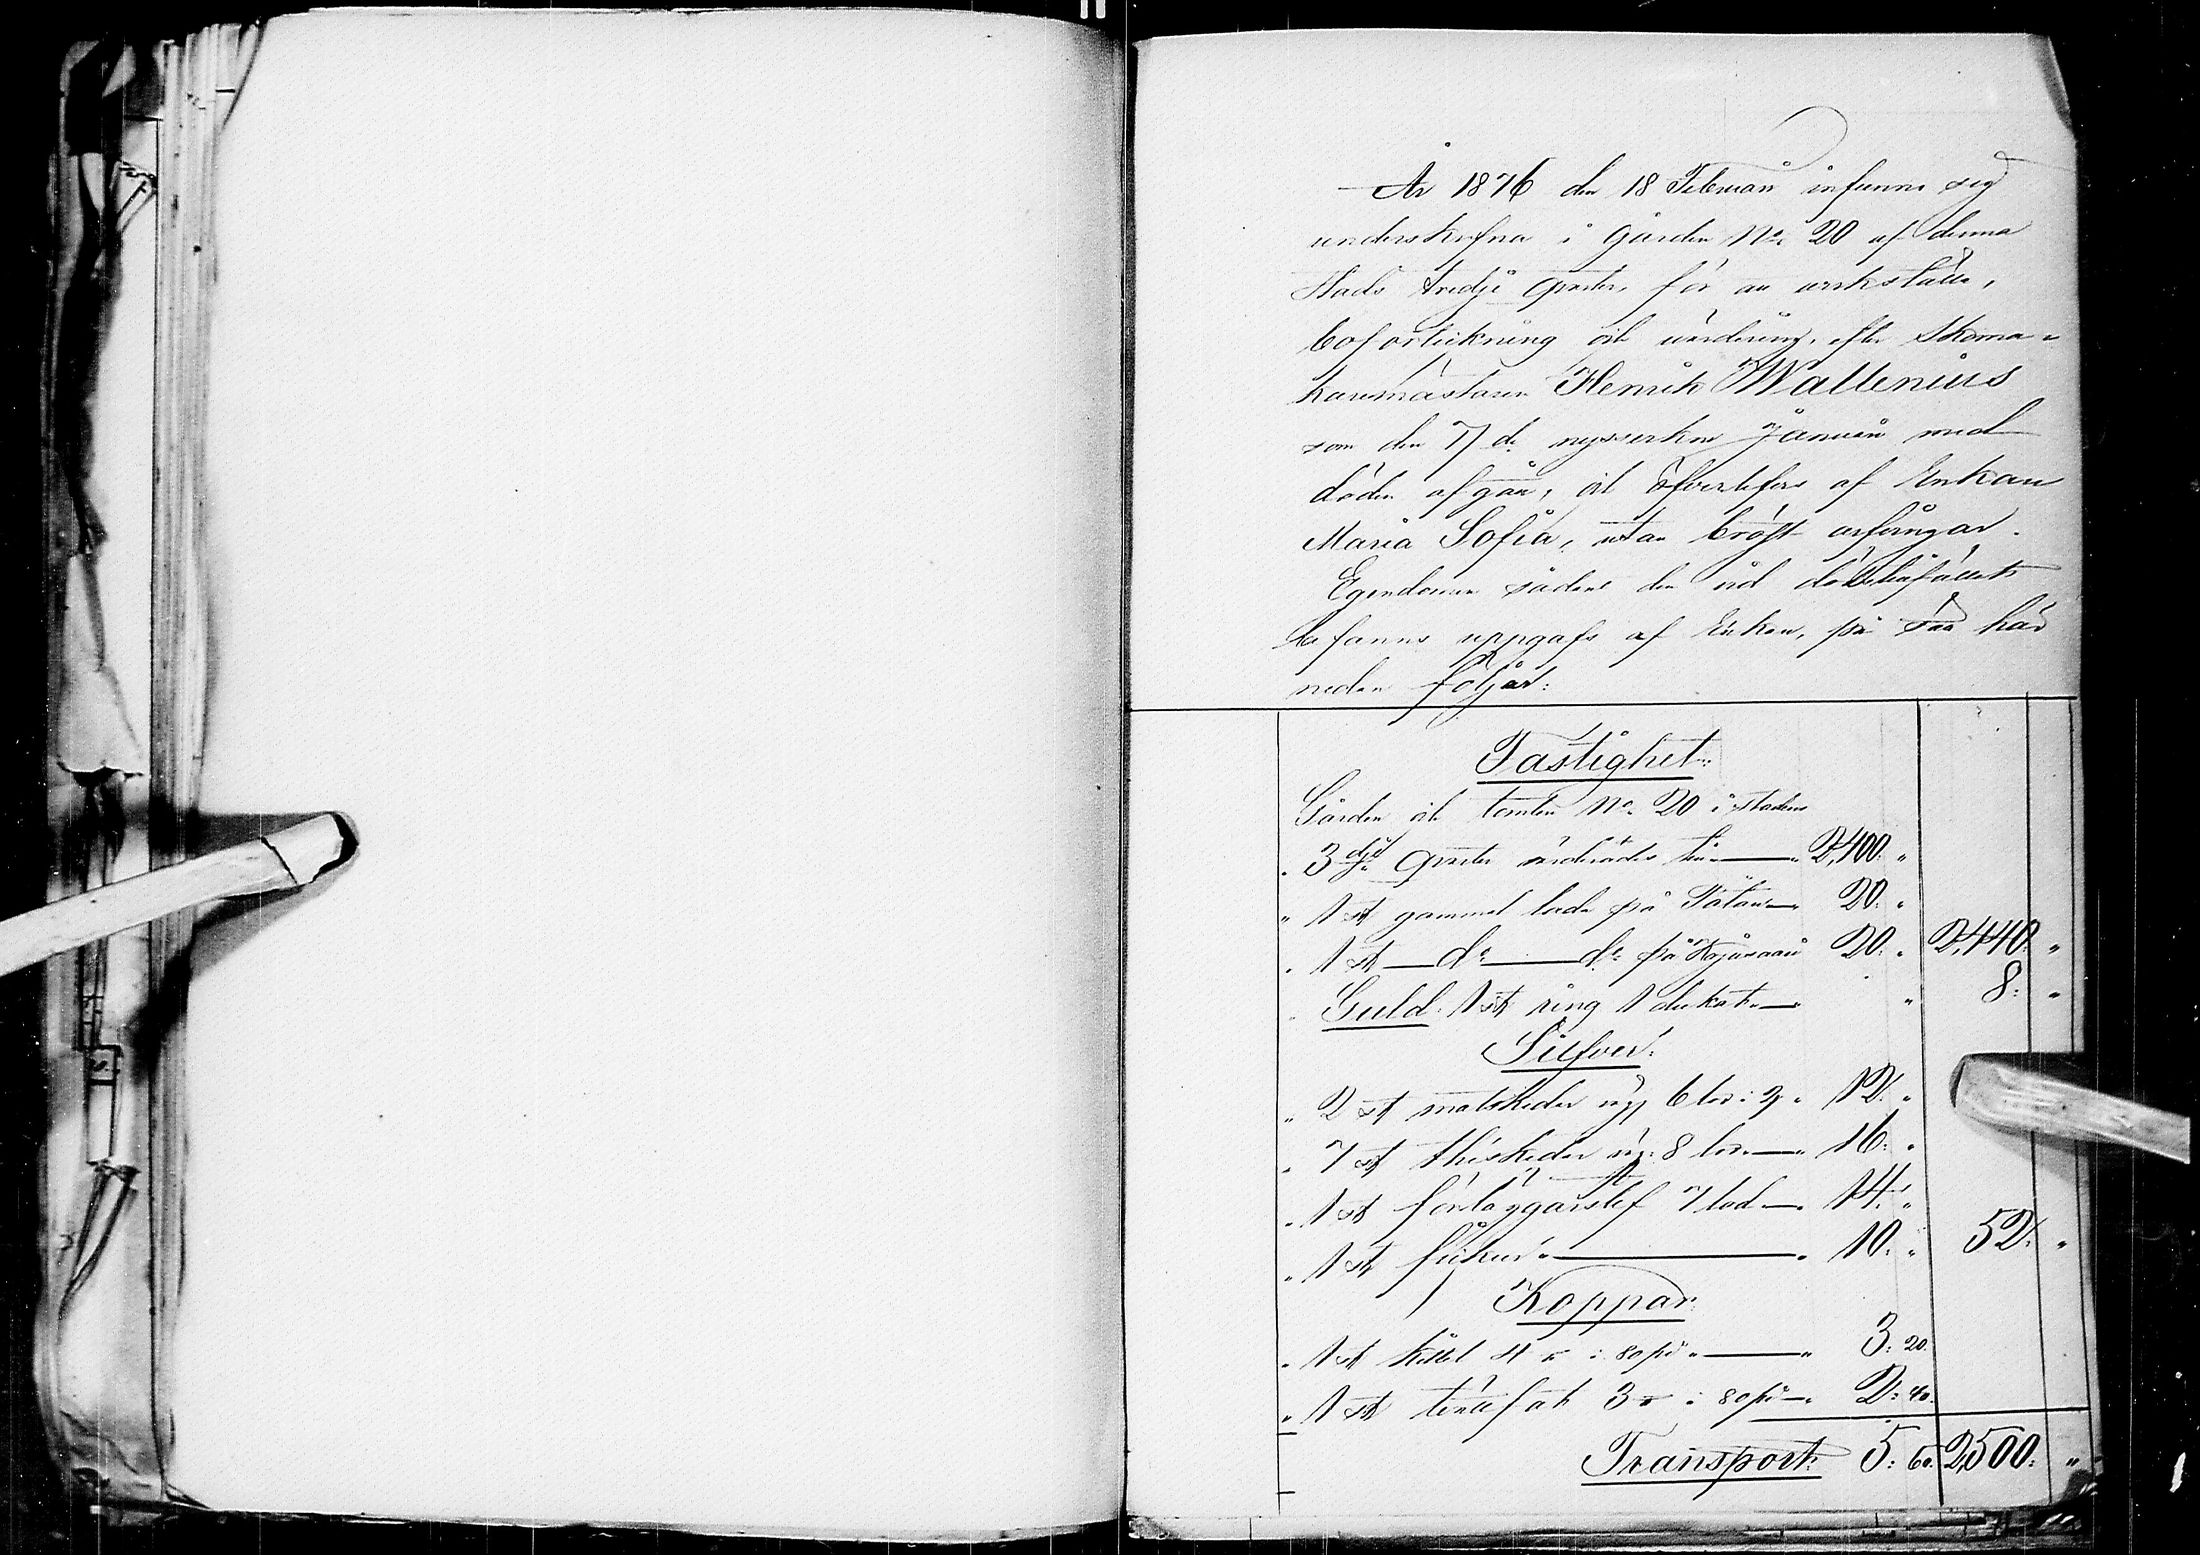 År 1876 den 18 Februari infunno sig
underskrefna i Gården No. 20 af denna
stads tredje qvarter, för att verkställa,
boförteckning och värdering, efter Skoma-
karemästaren Henrik Wallenius
som den 7 de Januari med
döden afgått, och öfverlefves af Enkan
Maria Sofia, utan bröst arfvingar.
Egendomen sådan den vid dödsfallet
befanns uppgafs af Enkan, på sätt här
nedan följer:
Fastighet:
Gården och tomten No. 20 i stadens
" 3dje Qvarter värderades till — 2,400: "
" 1 st gammal lada på — 20: "
" 1 st — do — do på — 20: " 2,440: "
" Guld 1 st ring 1 dukat — " 8: "
Silfver:
" 2 st matskedar väg 6 lod: 2 " 12: "
" 7 st théskedar väg: 8 lod — 16: "
" 1 st förläggarslef 7 lod — 14: "
" 1 st — 10: " 52: "
Koppar
" 1 st kittel 4 ℔ : 80 pi — 3: 20.
" 1 st fat 3 ℔ : 80 pi — 2: 40.
Transport: 5: 60. 2,500: "